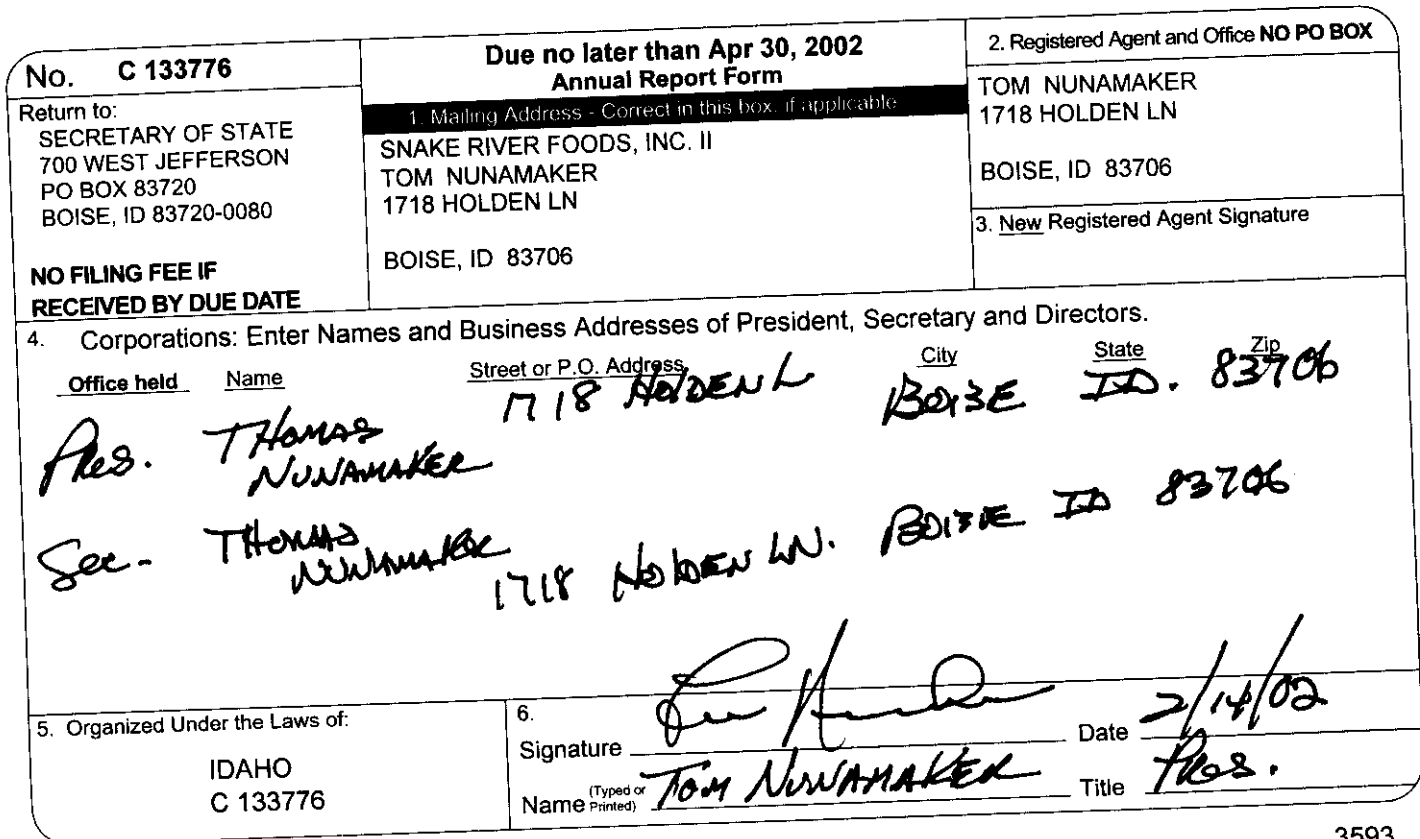 No. C 133776
Return to:
SECRETARY OF STATE
700 WEST JEFFERSON
PO BOX 83720
BOISE, ID 83720-0080
NO FILING FEE IF
RECEIVED BY DUE DATE
Due no later than Apr 30, 2002
Annual Report Form
1. Mailing Address - Correct in this box, if applicable
SNAKE RIVER FOODS, INC. II
TOM NUNAMAKER
1718 HOLDEN LN
BOISE, ID 83706
2. Registered Agent and Office NO PO BOX
TOM NUNAMAKER
1718 HOLDEN LN
BOISE, ID 83706
3. New Registered Agent Signature
4. Corporations: Enter Names and Business Addresses of President, Secretary and Directors.
Office held Name Street or P.O. Address City State Zip
Pres. THOMAS NUNAMAKER 1718 HOLDEN L BOISE ID. 83706
Sec. THOMAS NUNAMAKER 1718 HOLDEN LN. BOISE ID 83706
5. Organized Under the Laws of:
IDAHO
C 133776
6.
Signature Date 2/14/02
Name (Typed or Printed) TOM NUNAMAKER Title Pres.
3593